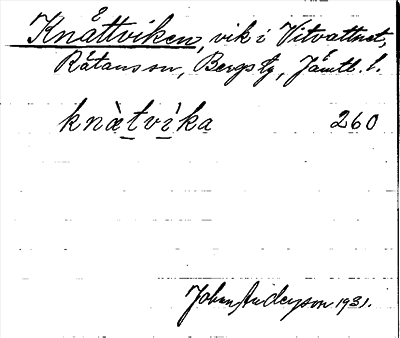 Knåttviken, vik i Vitvattnet,
Råtanssn, Bergs tg, Jämtl. l.
knàtvìka 260
Johan Anderson 1931.